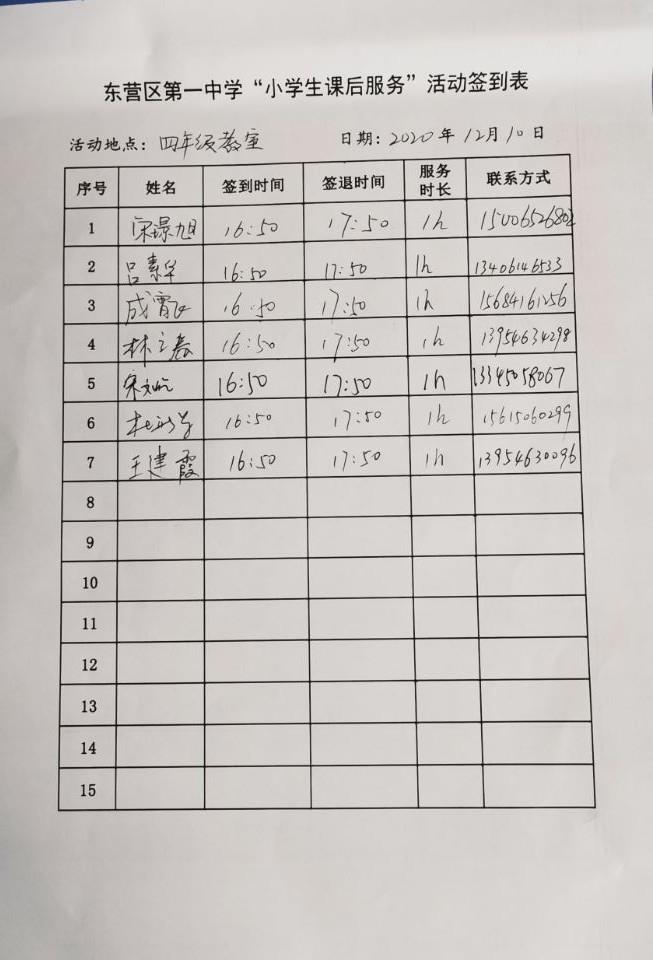 东营区第一中学“小学生课后服务”活动签到表
活动地点：四年级教室 日期：2020年12月10日
序号 姓名 签到时间 签退时间 服务时长 联系方式
1 宋璟旭 16:50 17:50 1h 15006526802
2 吕素华 16:50 17:50 1h 13406146533
3 16:50 17:50 1h 15684161256
4 林立春 16:50 17:50 1h 13954634298
5 16:50 17:50 1h 13345058067
6 16:50 17:50 1h 15615060299
7 王建霞 16:50 17:50 1h 13954630096
8
9
10
11
12
13
14
15